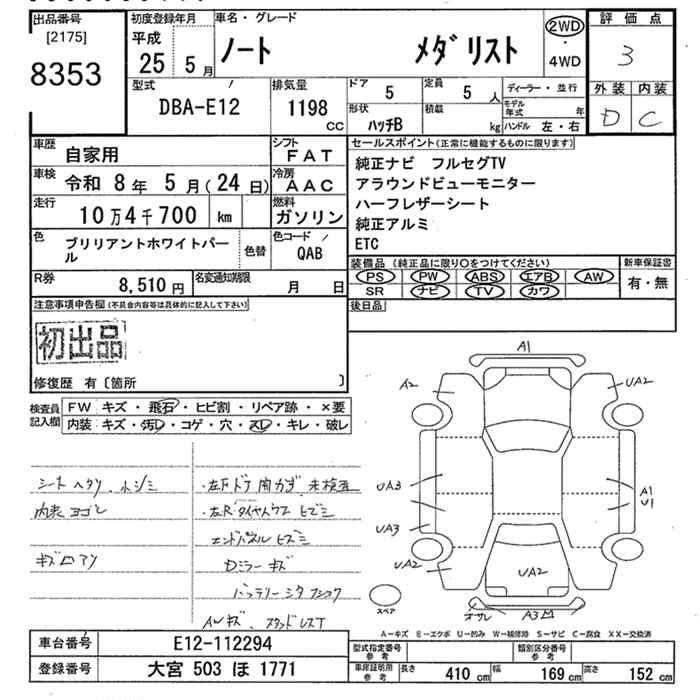 出品番号
[2175]
8353
初度登録年月
平成
25 5月
車名・グレード
ノート メダリスト
2WD
・
4WD
評価点
3
外装 内装
D C
型式
DBA-E12
排気量
1198
CC
ドア
5
定員
5人
形状
ハッチB
積載
kg
ディーラー・並行
モデル年式 年
ハンドル 左・右
車歴
自家用
シフト
FAT
車検
令和 8年 5月(24日)
冷房
AAC
走行
10万4千700 km
燃料
ガソリン
色
ブリリアントホワイトパール
色替
色コード
QAB
R券
8,510円
名変通知期限
月 日
セールスポイント(正常に機能するものに限ります)
純正ナビ フルセグTV
アラウンドビューモニター
ハーフレザーシート
純正アルミ
ETC
装備品(純正品に限り○をつけてください)
PS PW ABS エアB AW
SR ナビ TV カワ
新車保証書
有・無
後日品
注意事項申告欄(不具合内容等は具体的に記入して下さい)
初出品
修復歴 有〔箇所 〕
検査員
記入欄
FW キズ・飛石・ヒビ割・リペア跡・×要
内装:キズ・汚レ・コゲ・穴・スレ・キレ・破レ
シートヘタリ
内装ヨゴレ
エンドパネル ヒズミ
Dミラー キズ
A1
A2
UA2
UA3
A1
U1
UA3
UA2
UA2
スペア
A3
A-キズ E-エクボ U-凹み W-補修跡 S-サビ C-腐食 XX-交換済
車台番号
E12-112294
登録番号
大宮 503 ほ 1771
型式指定番号
参考
類別区分番号
参考
車庫証明用
参考
長さ 410 cm 幅 169 cm 高さ 152 cm